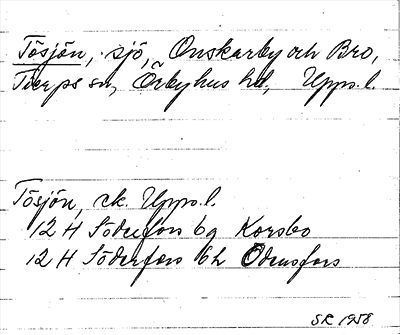 Tösjön, sjö, Onskarby och Bro,
Tierps sn, Örbyhus hd, Upps. l.
Tösjön, ek. Upps. l.
12 H Söderfors 6g Korsbo
12 H Söderfors 6h Odensfors
SR 1958